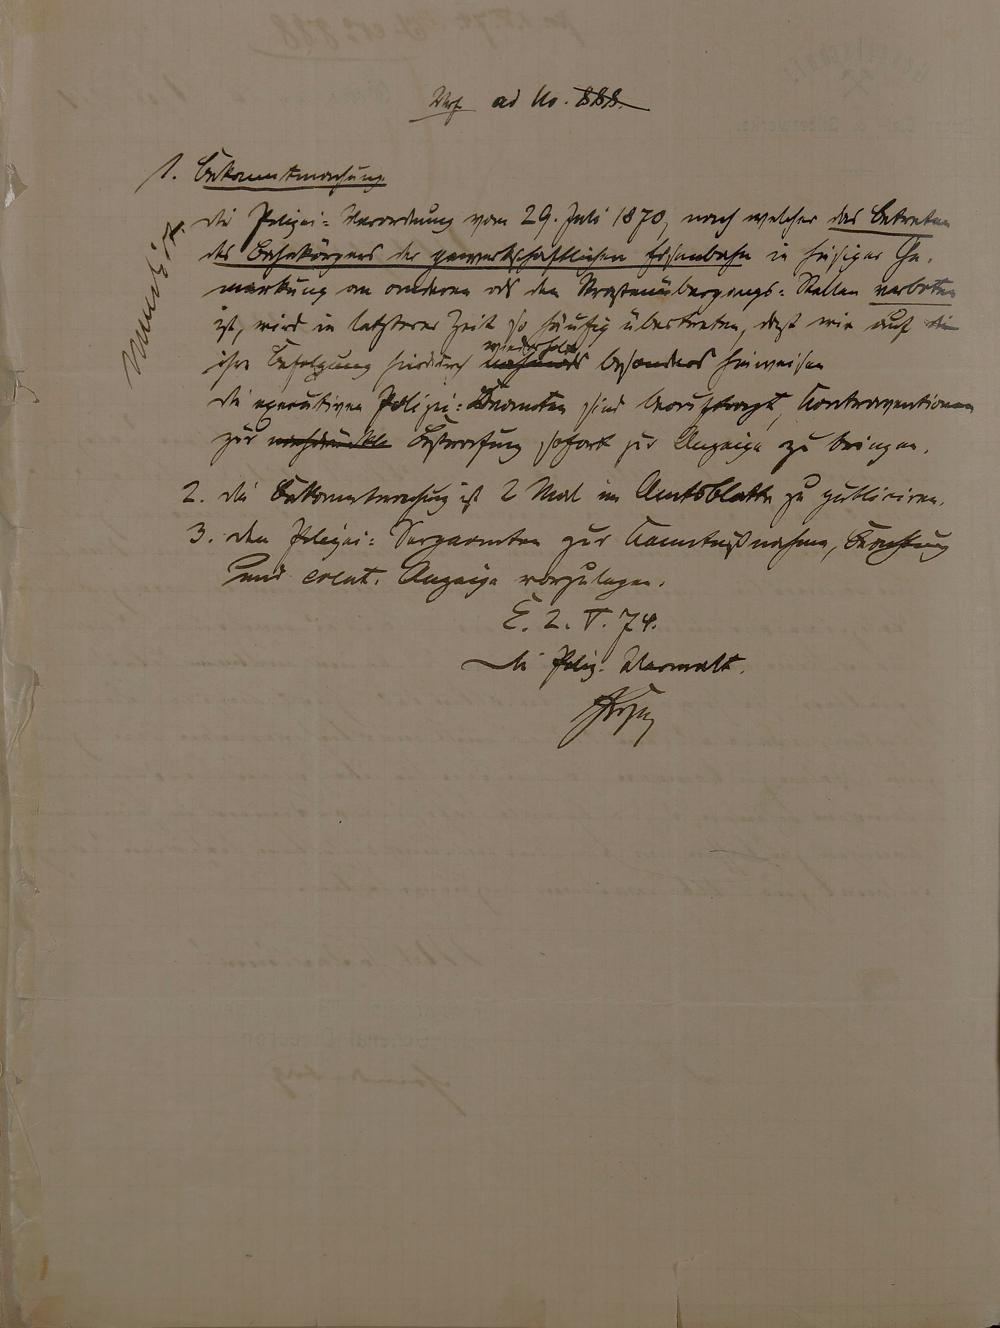 Verf. ad No. 888.
1. Bekanntmachung
Die Polizei-Verordnung vom 29. Juli 1870, nach welcher das Betreten
des Bahnkörpers der gewerkschaftlichen Eisenbahn in hiesiger Ge-
markung an anderen als den Straßenübergangs-Stellen verboten
ist, wird in letzterer Zeit so häufig übertreten, daß wir auf die
wiederholt
ihre Befolgung hierdurch nochmals besonders hinweisen
Die executiven Polizei-Beamten sind beauftragt, Contraventionen
zur Bestrafung sofort zur Anzeige zu bringen.
2. Die Bekanntmachung ist 2 Mal im Amtsblatte zu publiciren.
3. Den Polizei-Sergeanten zur Kenntnißnahme, Beachtung
und event. Anzeige vorzulegen.
E. 2. V. 74.
Die Poliz. Verwalt.